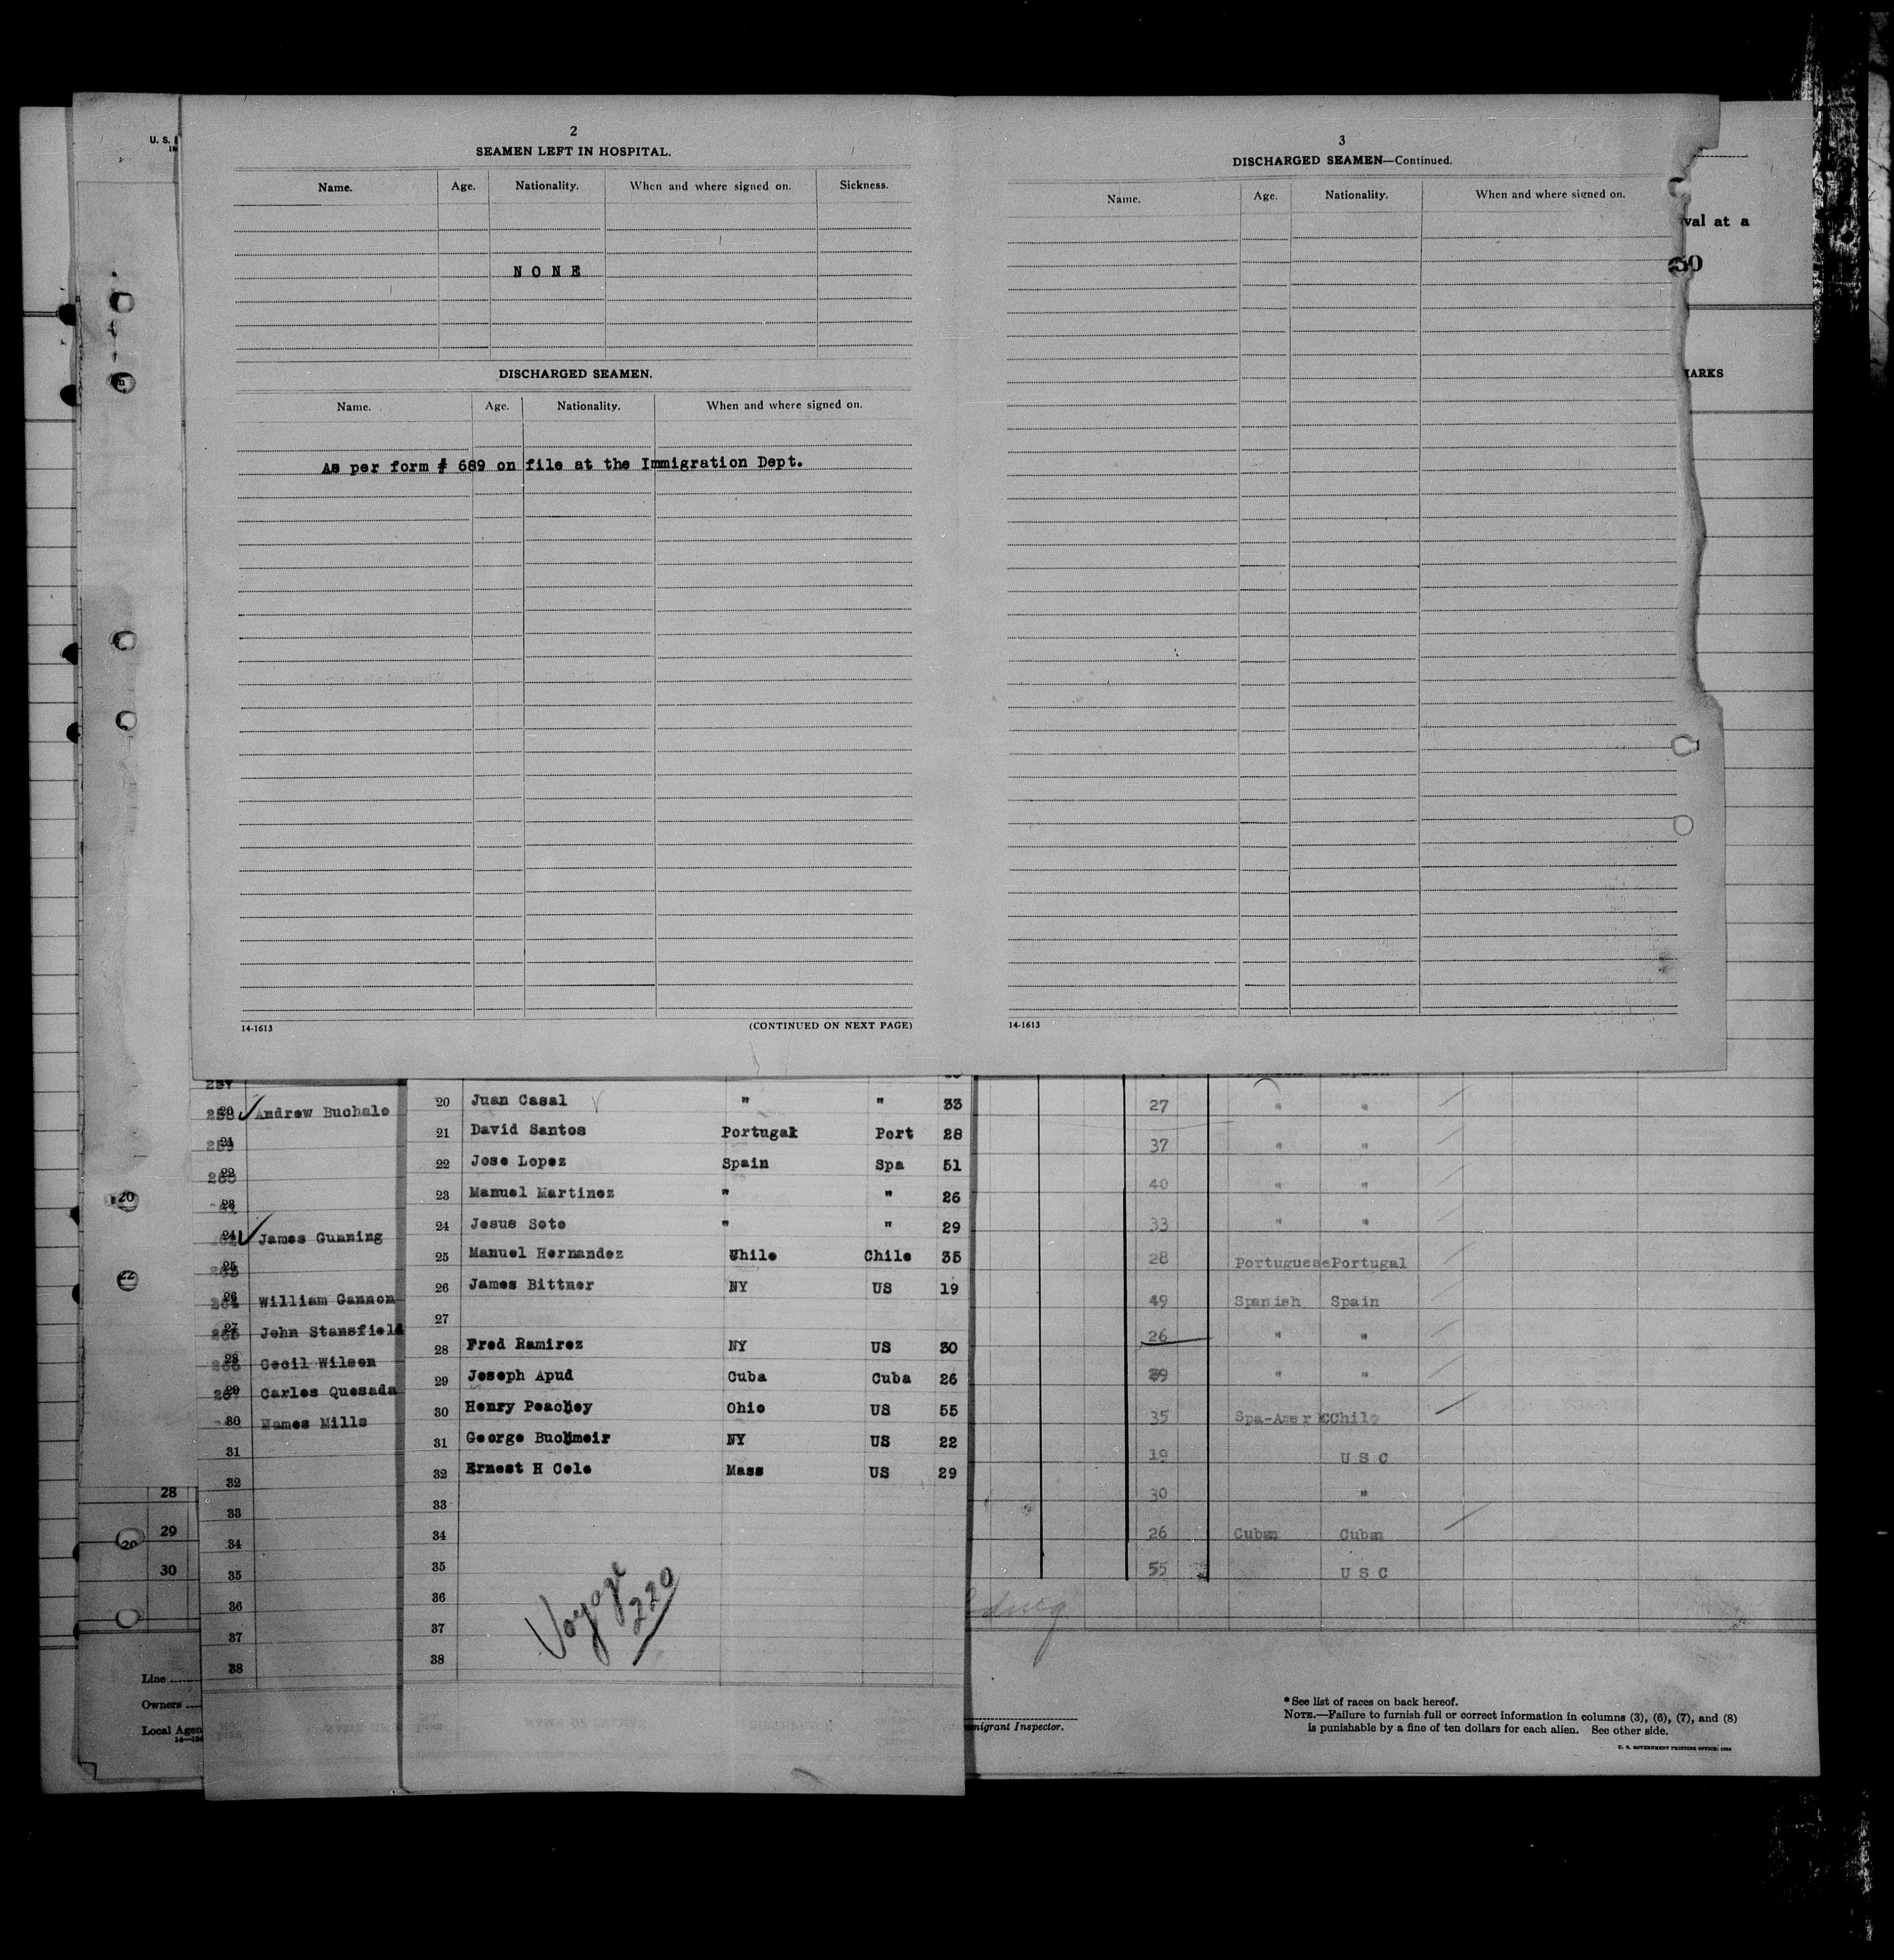 U. S.
2
SEAMEN LEFT IN HOSPITAL.
Name. Age. Nationality. When and where signed on. Sickness.
N O N E
DISCHARGED SEAMEN.
Name. Age. Nationality. When and where signed on.
As per form # 689 on file at the Immigration Dept.
14-1613 (CONTINUED ON NEXT PAGE)
3
DISCHARGED SEAMEN—Continued.
Name. Age. Nationality. When and where signed on.
14-1613
val at a
50
MARKS
20 Andrew Buchale
21
22
23
24 James Gunning
25
26 William Gannon
27 John Stansfield
28 Cecil Wilson
29 Carlos Quesada
30 Names Mills
31
32
33
34
35
36
37
38
20 Juan Casal " " 33
21 David Santos Portugal Port 28
22 Jose Lopez Spain Spa 51
23 Manuel Martinez " " 26
24 Jesus Soto " " 29
25 Manuel Hernandez Chile Chile 35
26 James Bittner NY US 19
27
28 Fred Ramirez NY US 30
29 Joseph Apud Cuba Cuba 26
30 Henry Peachey Ohio US 55
31 George Buchmeir NY US 22
32 Ernest H Cole Mass US 29
33
34
35
36
37
38
Voyage
220
27 " "
37 " "
40 " "
33 " "
28 Portuguese Portugal
49 Spanish Spain
26 " "
39 " "
35 Spa-Amer Chile
19 U S C
30 "
26 Cuban Cuban
55 U S C
20
22
28
29
30
20
Line
Owners
Local Agen
migrant Inspector.
*See list of races on back hereof.
NOTE.—Failure to furnish full or correct information in columns (3), (6), (7), and (8)
is punishable by a fine of ten dollars for each alien. See other side.
U. S. GOVERNMENT PRINTING OFFICE: